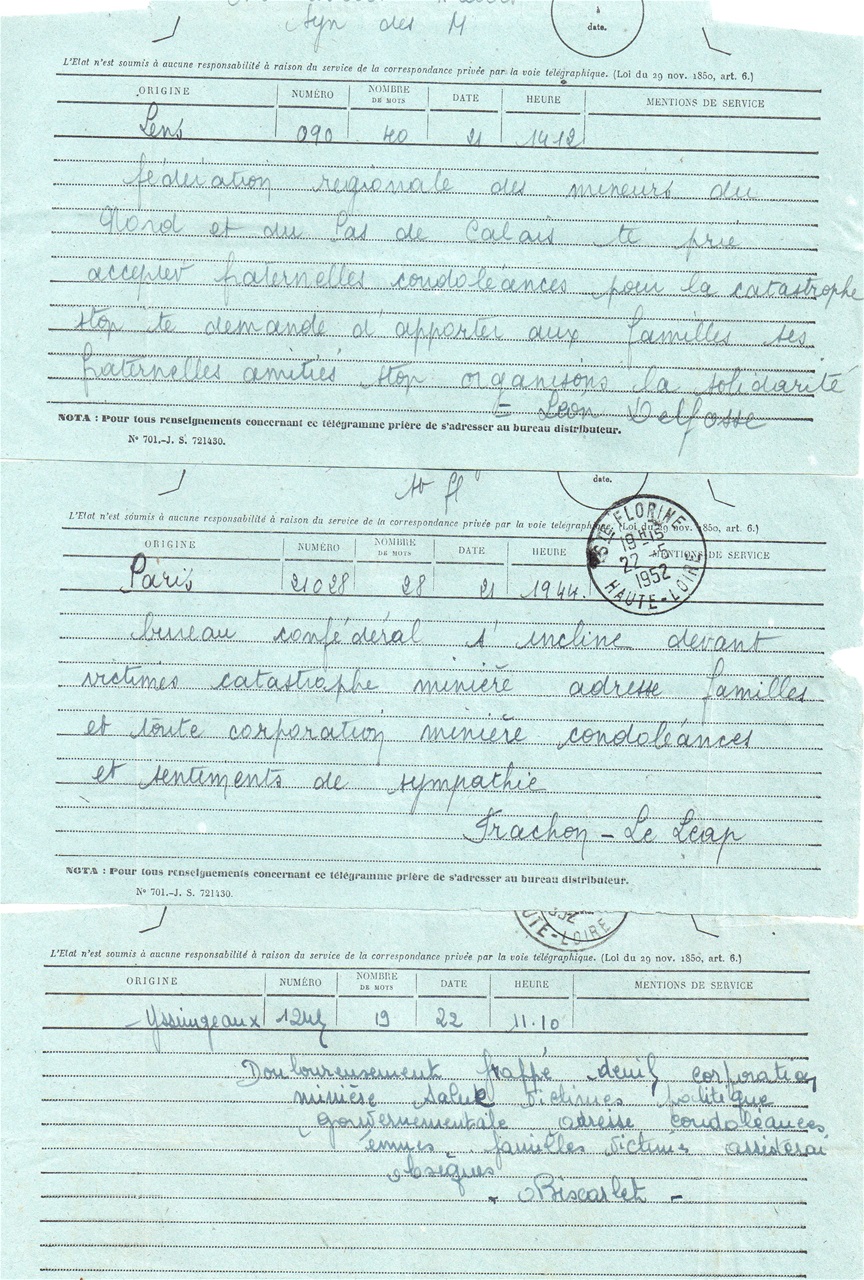 Syn des M
à
date.
L'Etat n'est soumis à aucune responsabilité à raison du service de la correspondance privée par la voie télégraphique. (Loi du 29 nov. 1850, art. 6.)
ORIGINE NUMÉRO NOMBRE DE MOTS DATE HEURE MENTIONS DE SERVICE
Lens 090 40 21 1412
fédération regionale des mineurs du
Nord et du Pas de Calais te prie
accepter fraternelles condoléances pour la catastrophe
stop te demande d'apporter aux familles ses
fraternelles amitiés stop organisons la solidarité
= Léon Delfosse
NOTA : Pour tous renseignements concernant ce télégramme prière de s'adresser au bureau distributeur.
N° 701.-J. S. 721430.
date.
L'Etat n'est soumis à aucune responsabilité à raison du service de la correspondance privée par la voie télégraphique. (Loi du 29 nov. 1850, art. 6.)
ORIGINE NUMÉRO NOMBRE DE MOTS DATE HEURE MENTIONS DE SERVICE
STE FLORINE
19 H 15
22 -5
1952
HAUTE-LOIRE
Paris 21028 28 21 1944.
bureau confédéral s'incline devant
victimes catastrophe minière adresse familles
et toute corporation minière condoléances
et sentiments de sympathie
Frachon - Le Leap
NOTA : Pour tous renseignements concernant ce télégramme prière de s'adresser au bureau distributeur.
N° 701.-J. S. 721430.
952
UTE-LOIRE
L'Etat n'est soumis à aucune responsabilité à raison du service de la correspondance privée par la voie télégraphique. (Loi du 29 nov. 1850, art. 6.)
ORIGINE NUMÉRO NOMBRE DE MOTS DATE HEURE MENTIONS DE SERVICE
Yssingeaux 19 22 11.10
Douloureusement frappé deuil corporation
minière salue victimes politique
gouvernementale adresse condoléances
émues familles victimes assisterai
obsèques
- Biscarlet -